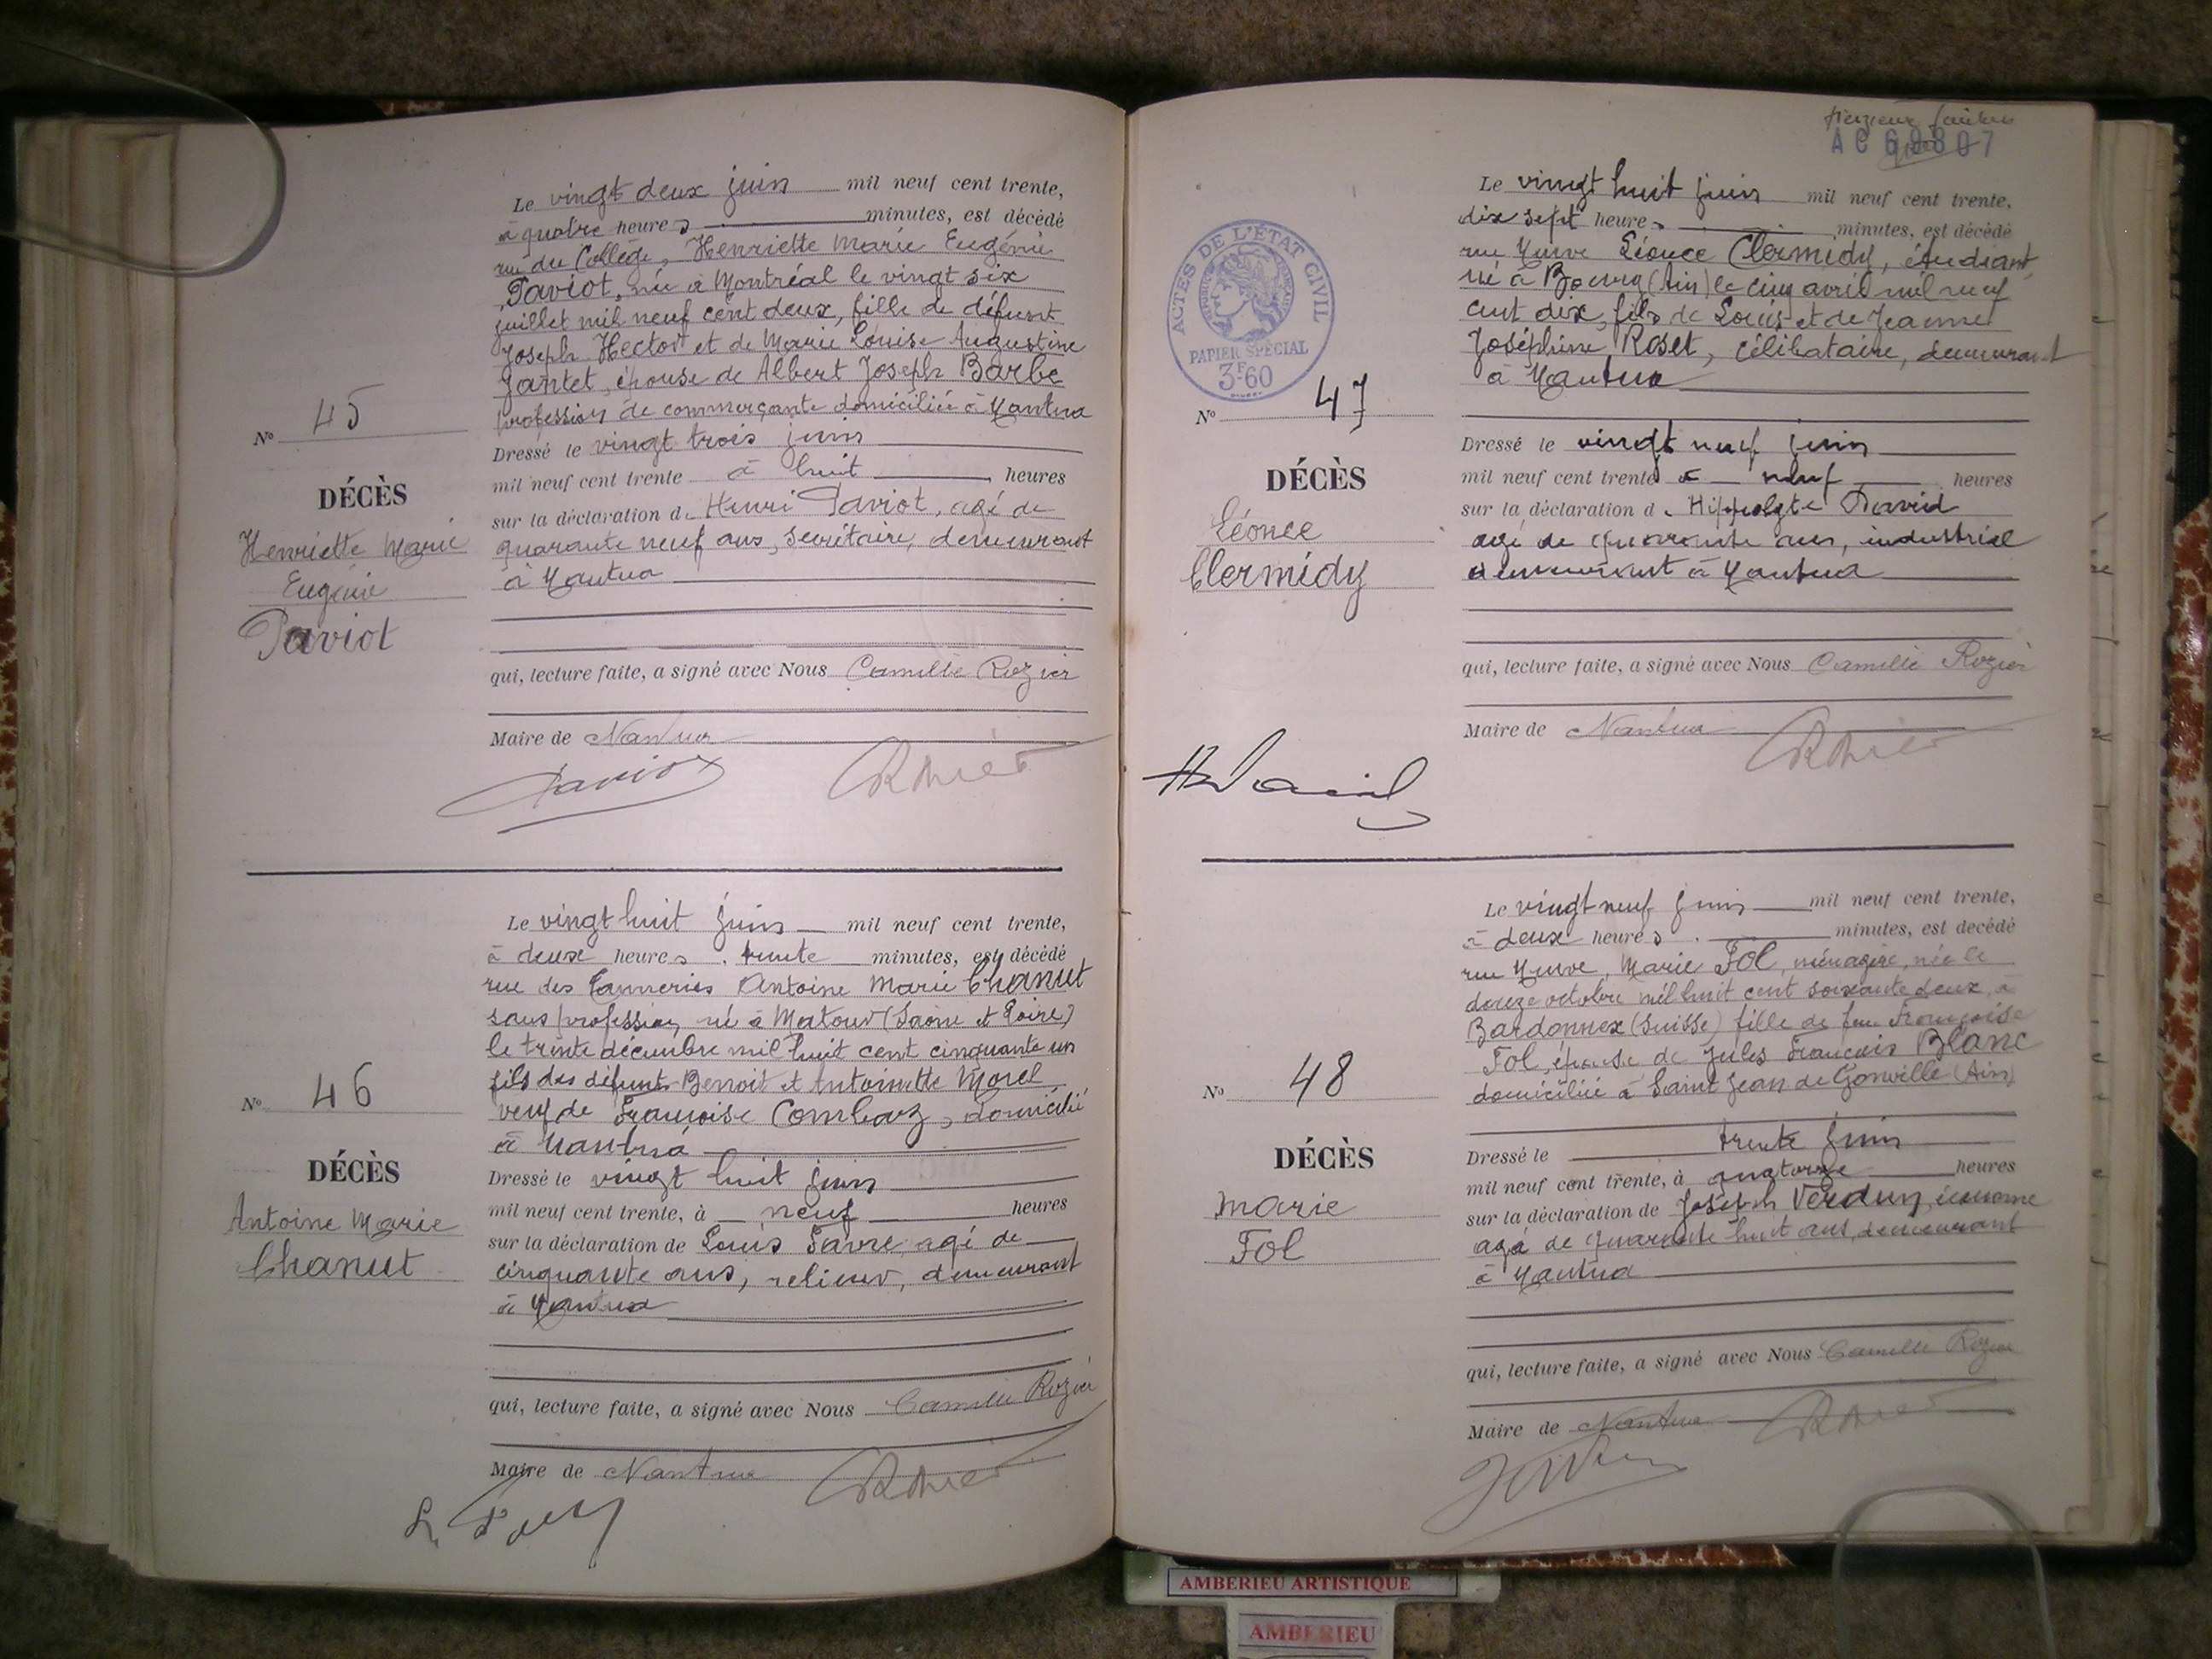 Le vingt deux juin mil neuf cent trente,
à quatre heures minutes, est décédé
rue du Collège, Henriette Marie Eugénie
Paviot, née à Montréal le vingt six
juillet mil neuf cent deux, fille de défunt
Joseph Hector et de Marie Louise Augustine
Jantet, épouse de Albert Joseph Barbe
profession de commerçante domiciliée à Nantua
Nº 45
Dressé le vingt trois juin
mil neuf cent trente à huit heures
DÉCÈS
sur la déclaration de Henri Paviot, agé de
Henriette Marie
quarante neuf ans, secrétaire, demeurant
Eugénie
à Nantua
Paviot
qui, lecture faite, a signé avec Nous Camille Rozier
Maire de Nantua
Paviot
Le vingt huit juin mil neuf cent trente,
à deux heures trente minutes, est décédé
rue des Tanneries Antoine Marie Chanut
sans profession, né à Matour (Saône et Loire)
le trente décembre mil huit cent cinquante un
fils des défunts Benoit et Antoinette Morel
Nº 46
veuf de Françoise Combaz, domicilié
à Nantua
DÉCÈS
Dressé le vingt huit juin
Antoine Marie
mil neuf cent trente, à neuf heures
Chanut
sur la déclaration de Louis Favre, agé de
cinquante ans, relieur, demeurant
à Nantua
qui, lecture faite, a signé avec Nous Camille Rozier
Maire de Nantua
AC 69807
Le vingt huit juin mil neuf cent trente,
dix sept heures minutes, est décédé
rue Neuve Léonce Clermidy, étudiant,
né à Bourg (Ain) le cinq avril mil neuf
cent dix, fils de Louis et de Jeanne
Joséphine Roset, célibataire, demeurant
à Nantua
ACTES DE L'ÉTAT CIVIL
PAPIER SPÉCIAL
3F60
Nº 47
Dressé le vingt neuf juin
DÉCÈS
mil neuf cent trente à neuf heures
Léonce
sur la déclaration d Hippolyte David
Clermidy
agé de quarante ans, industriel
demeurant à Nantua
qui, lecture faite, a signé avec Nous Camille Rozier
Maire de Nantua
H David
Le vingt neuf juin mil neuf cent trente,
à deux heures minutes, est décédé
rue Neuve, Marie Fol, ménagère, née le
douze octobre mil huit cent soixante deux, à
Bardonnex (Suisse) fille de feu Françoise
Fol, épouse de Jules François Blanc
Nº 48
domiciliée à Saint Jean de Gonville (Ain)
DÉCÈS
Dressé le trente juin
mil neuf cent trente, à quatorze heures
Marie
sur la déclaration de Joseph Verdun, économe
Fol
agé de quarante huit ans, demeurant
à Nantua
qui, lecture faite, a signé avec Nous Camille Rozier
Maire de Nantua
AMBERIEU ARTISTIQUE
AMBERIEU